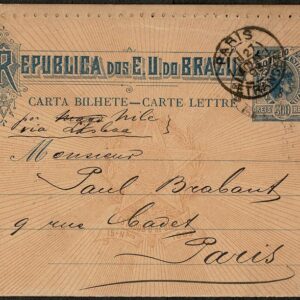 REPUBLICA DOS E. U. DO BRAZIL
PARIS
ETRANGER
CARTA BILHETE–CARTE LETTRE
REIS
par
via Lisboa
Monsieur
Paul Brabant
9 rue Cadet
Paris